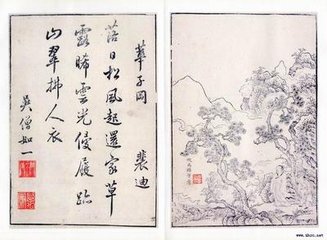 華子岡
裴迪
落日松風起還家草
露晞雲光侵履跡
山翠拂人衣
吳僧如一